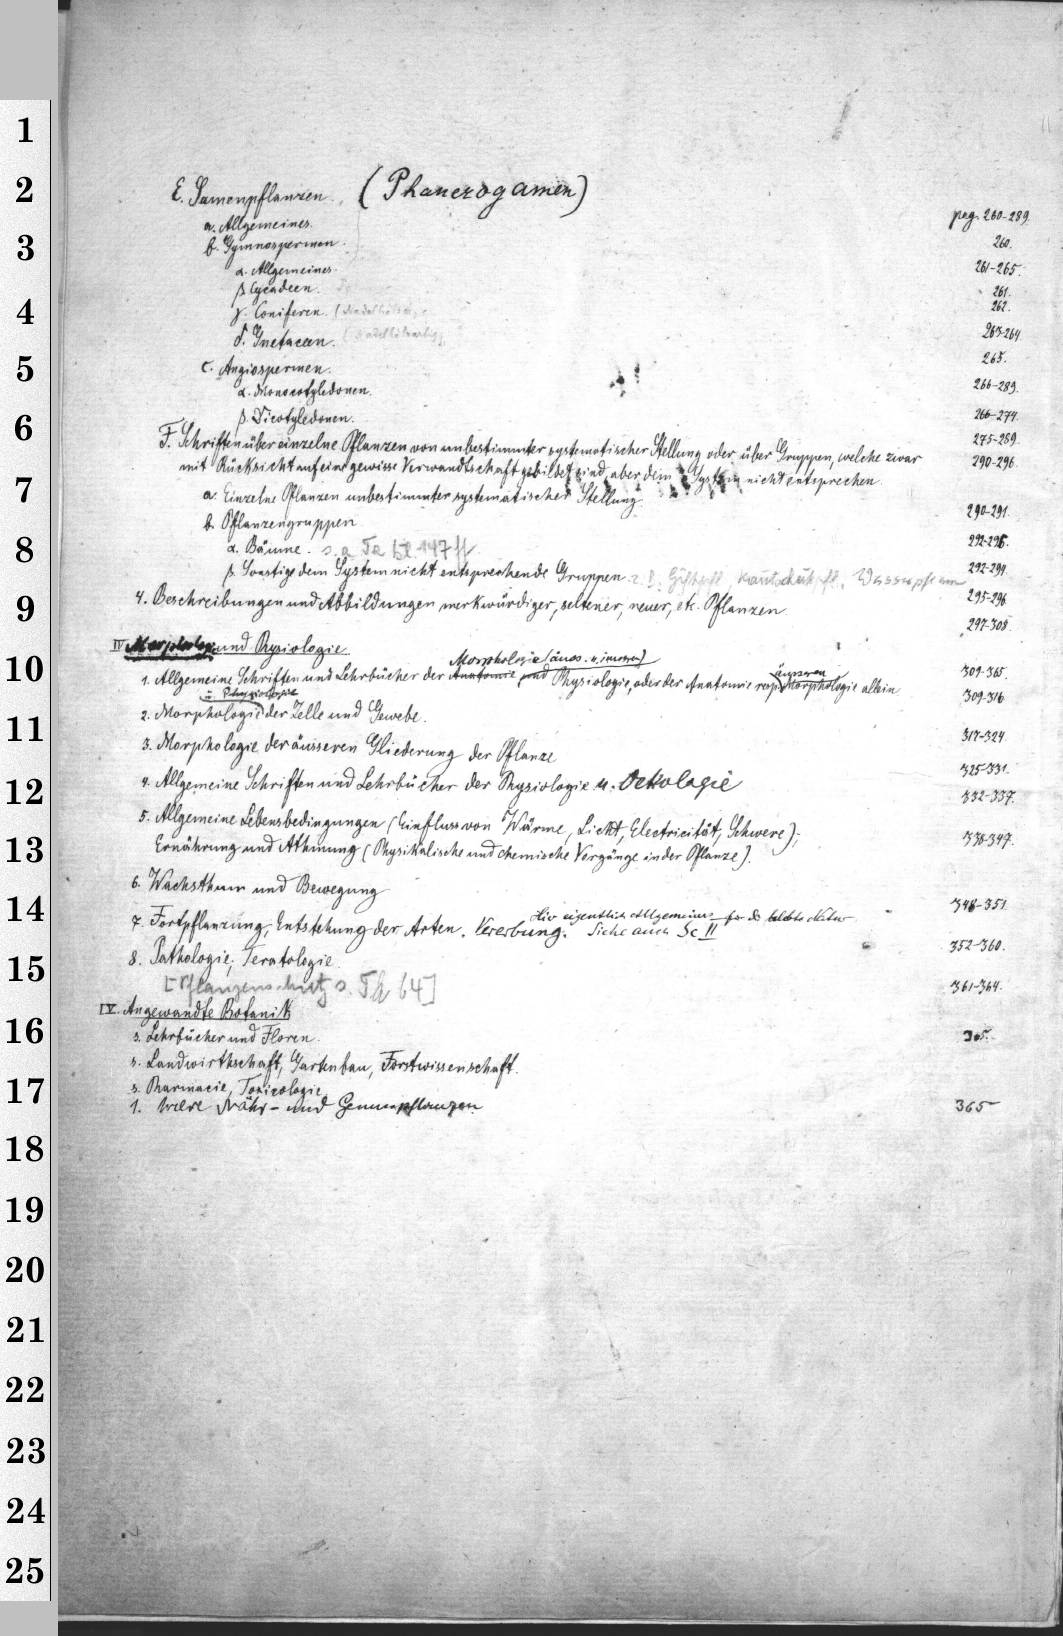 1
2
E. Samenpflanzen. (Phanerogamen) pag. 260-289
a. Allgemeines. 260.
3
b. Gymnospermen. 261-265.
α. Allgemeines. 261.
β. Cycadeen. 262.
4
γ. Coniferen. (Nadelhölzer) 263-264
δ. Gnetaceen. 265.
5
c. Angiospermen. 266-289.
α. Monocotyledonen. 266-274.
6
β. Dicotyledonen. 275-289.
F. Schriften über einzelne Pflanzen von unbestimmter systematischer Stellung oder über Gruppen, welche zwar 290-296
mit Rücksicht auf eine gewisse Verwandtschaft gebildet sind, aber dem System nicht entsprechen.
7
a. Einzelne Pflanzen unbestimmter systematischer Stellung. 290-291.
b. Pflanzengruppen 292-296.
8
α. Bäume. s. a. 147 ff. 292-294
β. Sonstige dem System nicht entsprechende Gruppen z. B. Giftpfl. Kautschukpfl. Wasserpflanzen 295-296
9
4. Beschreibungen und Abbildungen merkwürdiger, seltener, neuer, etc. Pflanzen 297-308.
IV Morphologie und Physiologie. 309-365.
10
Morphologie (äuss. u. inneren) äusseren
1. Allgemeine Schriften und Lehrbücher der Anatomie und Physiologie, oder der Anatomie resp. Morphologie allein 309-316
u. Physiologie
2. Morphologie der Zelle und Gewebe. 317-324.
11
3. Morphologie der äusseren Gliederung der Pflanze 325-331.
12
4. Allgemeine Schriften und Lehrbücher der Physiologie u. Oekologie 332-337.
5. Allgemeine Lebensbedingungen (Einfluss von Wärme, Licht, Electricität, Schwere); 338-347.
13
Ernährung und Athmung (Physikalische und chemische Vorgänge in der Pflanze).
6. Wachsthum und Bewegung 348-351.
14
Hier eigentlich Allgemeines für d. belebte Natur
7. Fortpflanzung, Entstehung der Arten. Vererbung. Siehe auch Sc II 352-360.
15
8. Pathologie, Teratologie. 361-364.
[Pflanzenschutz s. 64]
IV. Angewandte Botanik 365.
16
s. Lehrbücher und Floren.
s. Landwirthschaft, Gartenbau, Forstwissenschaft.
17
s. Pharmacie, Toxicologie
1. Nähr- und Genusspflanzen 365
18
19
20
21
22
23
24
25